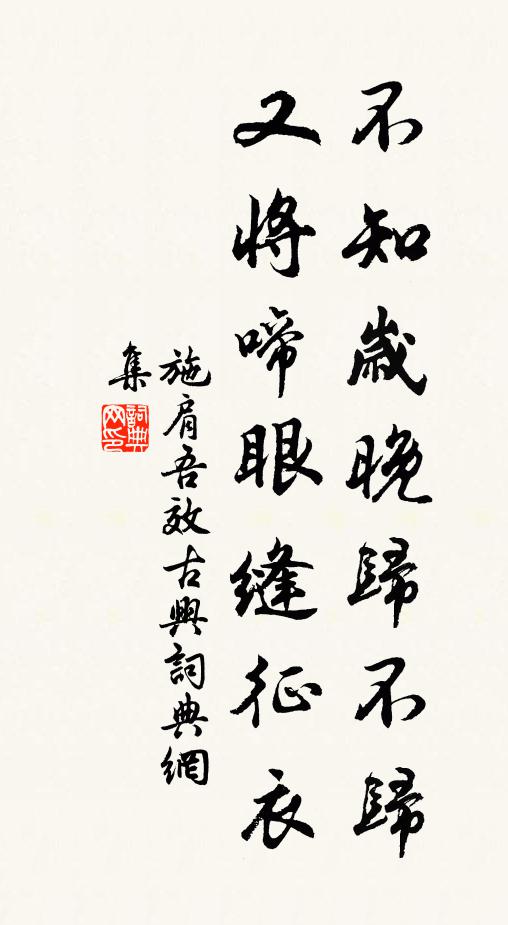 不知歲晚歸不歸
又將啼眼縫征衣
施肩吾效古興詞典網
集
詞典
网印